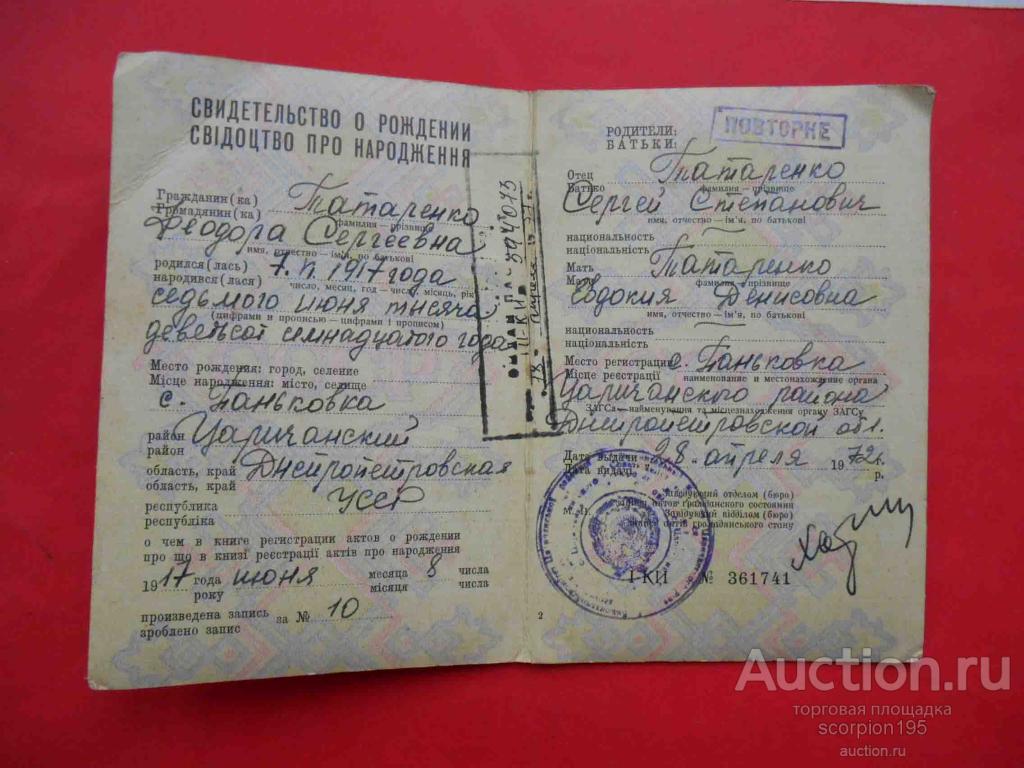 СВИДЕТЕЛЬСТВО О РОЖДЕНИИ
СВІДОЦТВО ПРО НАРОДЖЕННЯ
Гражданин(ка) Татаренко
Громадянин(ка) фамилия — прізвище
Феодора Сергеевна
имя, отчество — ім'я, по батькові
родился(лась) 7. VI. 1917 года
народився(лася) число, месяц, год — число, місяць, рік
седьмого июня тысяча
(цифрами и прописью — цифрами і прописом)
девятсот семнадцатого года
Место рождения: город, селение
Місце народження: місто, селище
с. Паньковка
район Царичанский
район
область, край Днепропетровская
область, край
республика УССР
республіка
о чем в книге регистрации актов о рождении
про що в книзі реєстрації актів про народження
1917 года июня месяца 8 числа
року місяця числа
произведена запись за № 10
зроблено запис
ПОВТОРНЕ
РОДИТЕЛИ:
БАТЬКИ:
Отец Татаренко
Батько фамилия — прізвище
Сергей Степанович
имя, отчество — ім'я, по батькові
национальность —
національність
Мать Татаренко
Мати фамилия — прізвище
Евдокия Денисовна
имя, отчество — ім'я, по батькові
национальность —
національність
Место регистрации с. Паньковка
Місце реєстрації наименование и местонахождение органа
Царичанского района
ЗАГСа — найменування та місцезнаходження органу ЗАГСу
Днепропетровской обл.
Дата выдачи 28 апреля 1972 г.
Дата видачі р.
М. П. Заведующий отделом (бюро)
записи актов гражданского состояния
Завідуючий відділом (бюро)
записів актів громадянського стану
I-КИ № 361741
2
Auction.ru
торговая площадка
scorpion195
auction.ru